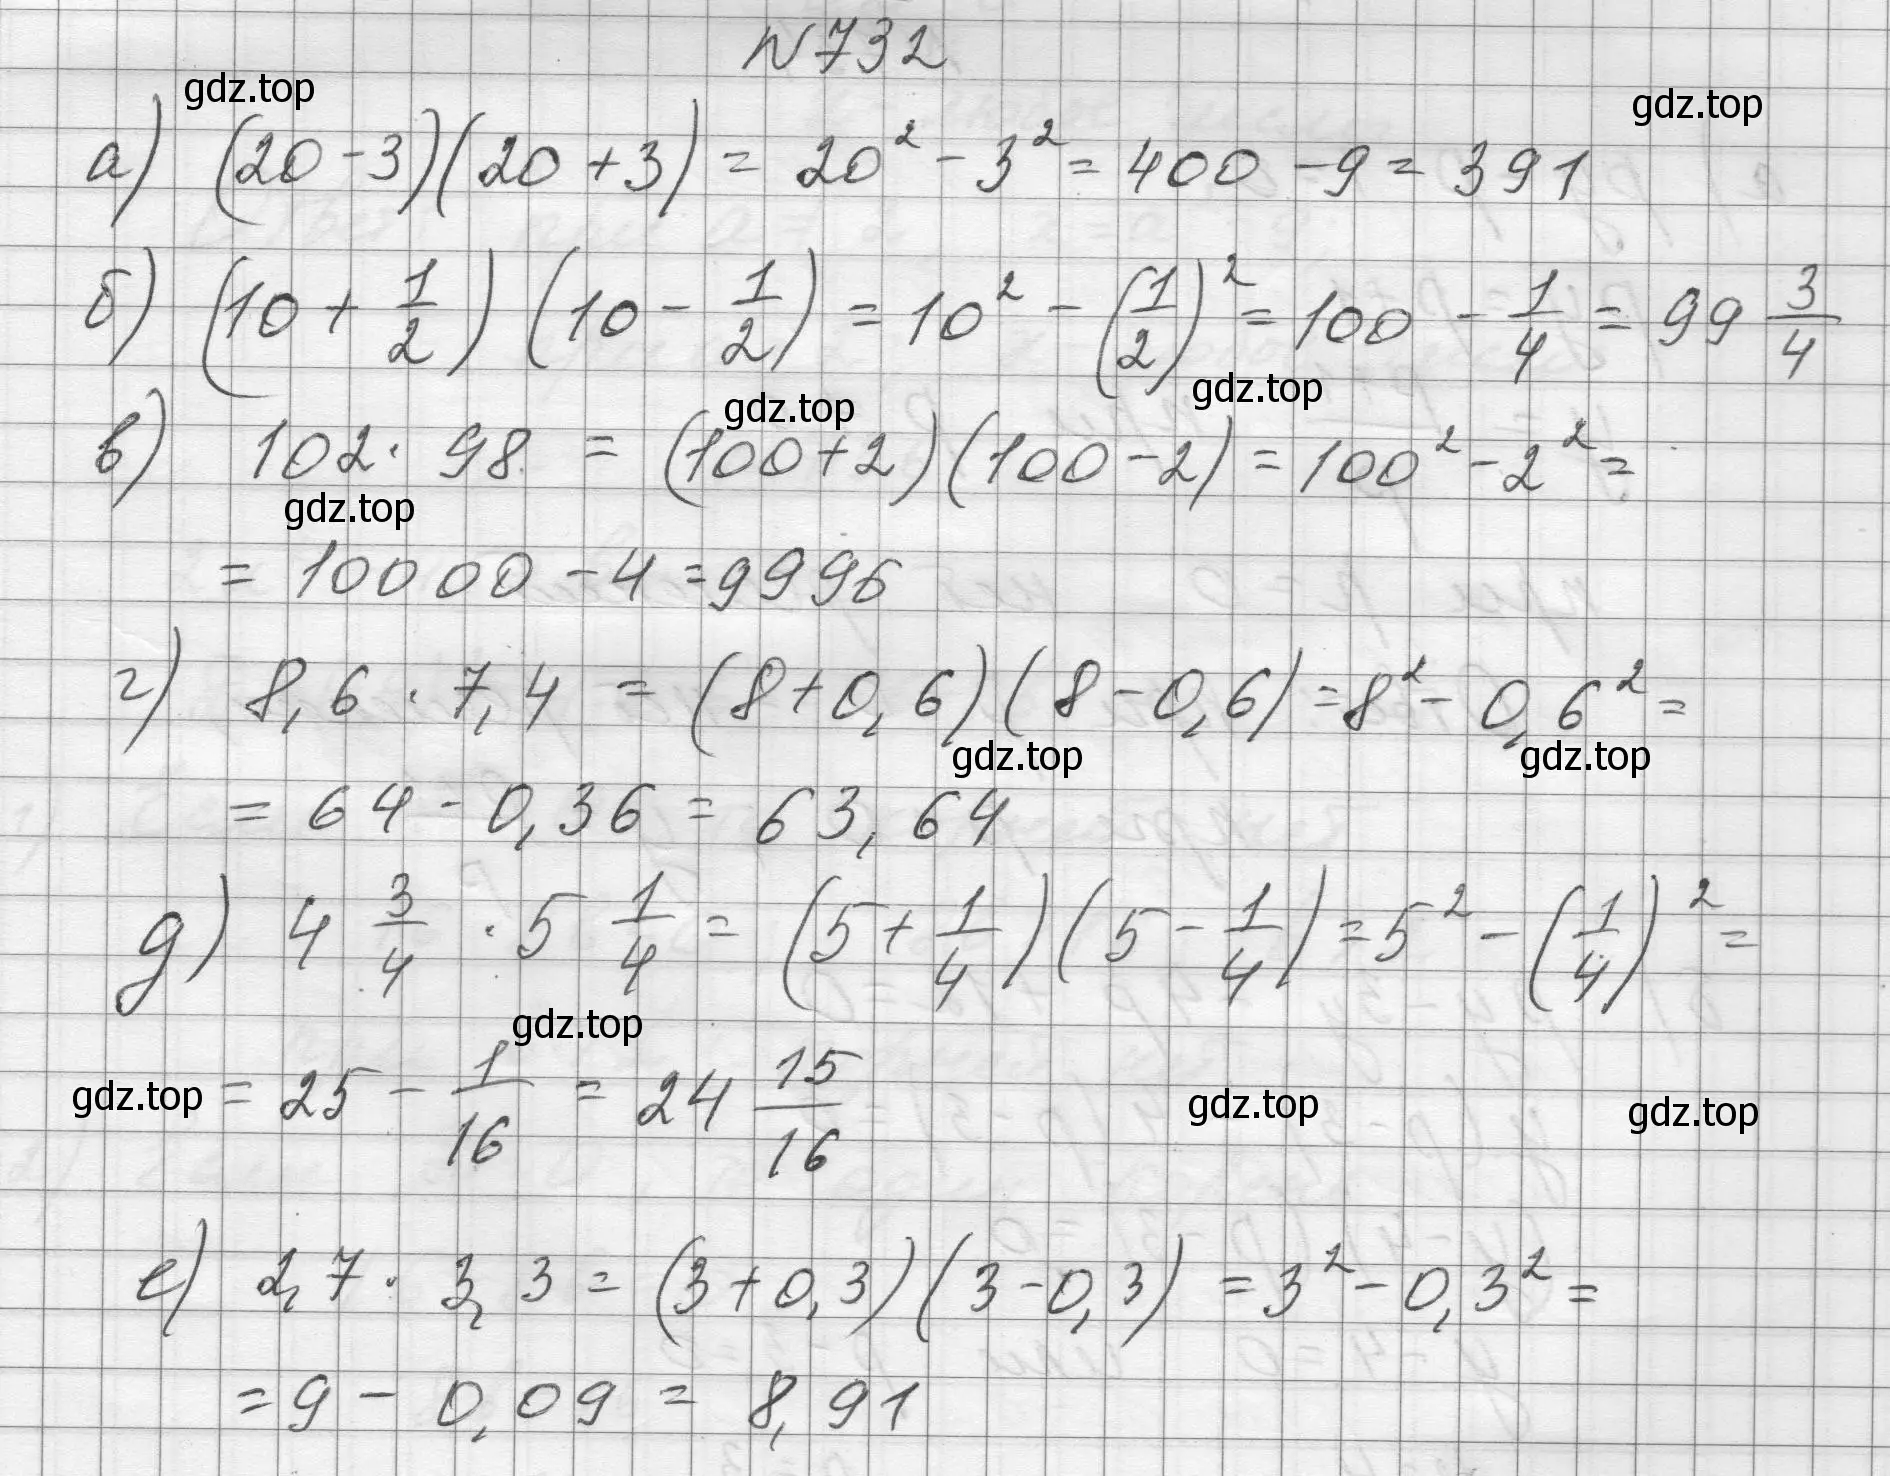 N 732
gdz.top
gdz.top
а) (20 - 3)(20 + 3) = 20² - 3² = 400 - 9 = 391
б) (10 + 1/2) (10 - 1/2) = 10² - (1/2)² = 100 - 1/4 = 99 3/4
gdz.top
gdz.top
в) 102 · 98 = (100 + 2)(100 - 2) = 100² - 2² =
gdz.top
= 10000 - 4 = 9996
г) 8,6 · 7,4 = (8 + 0,6)(8 - 0,6) = 8² - 0,6² =
gdz.top
gdz.top
= 64 - 0,36 = 63,64
д) 4 3/4 · 5 1/4 = (5 + 1/4)(5 - 1/4) = 5² - (1/4)² =
gdz.top
gdz.top
= 25 - 1/16 = 24 15/16
gdz.top
gdz.top
е) 2,7 · 3,3 = (3 + 0,3)(3 - 0,3) = 3² - 0,3² =
= 9 - 0,09 = 8,91